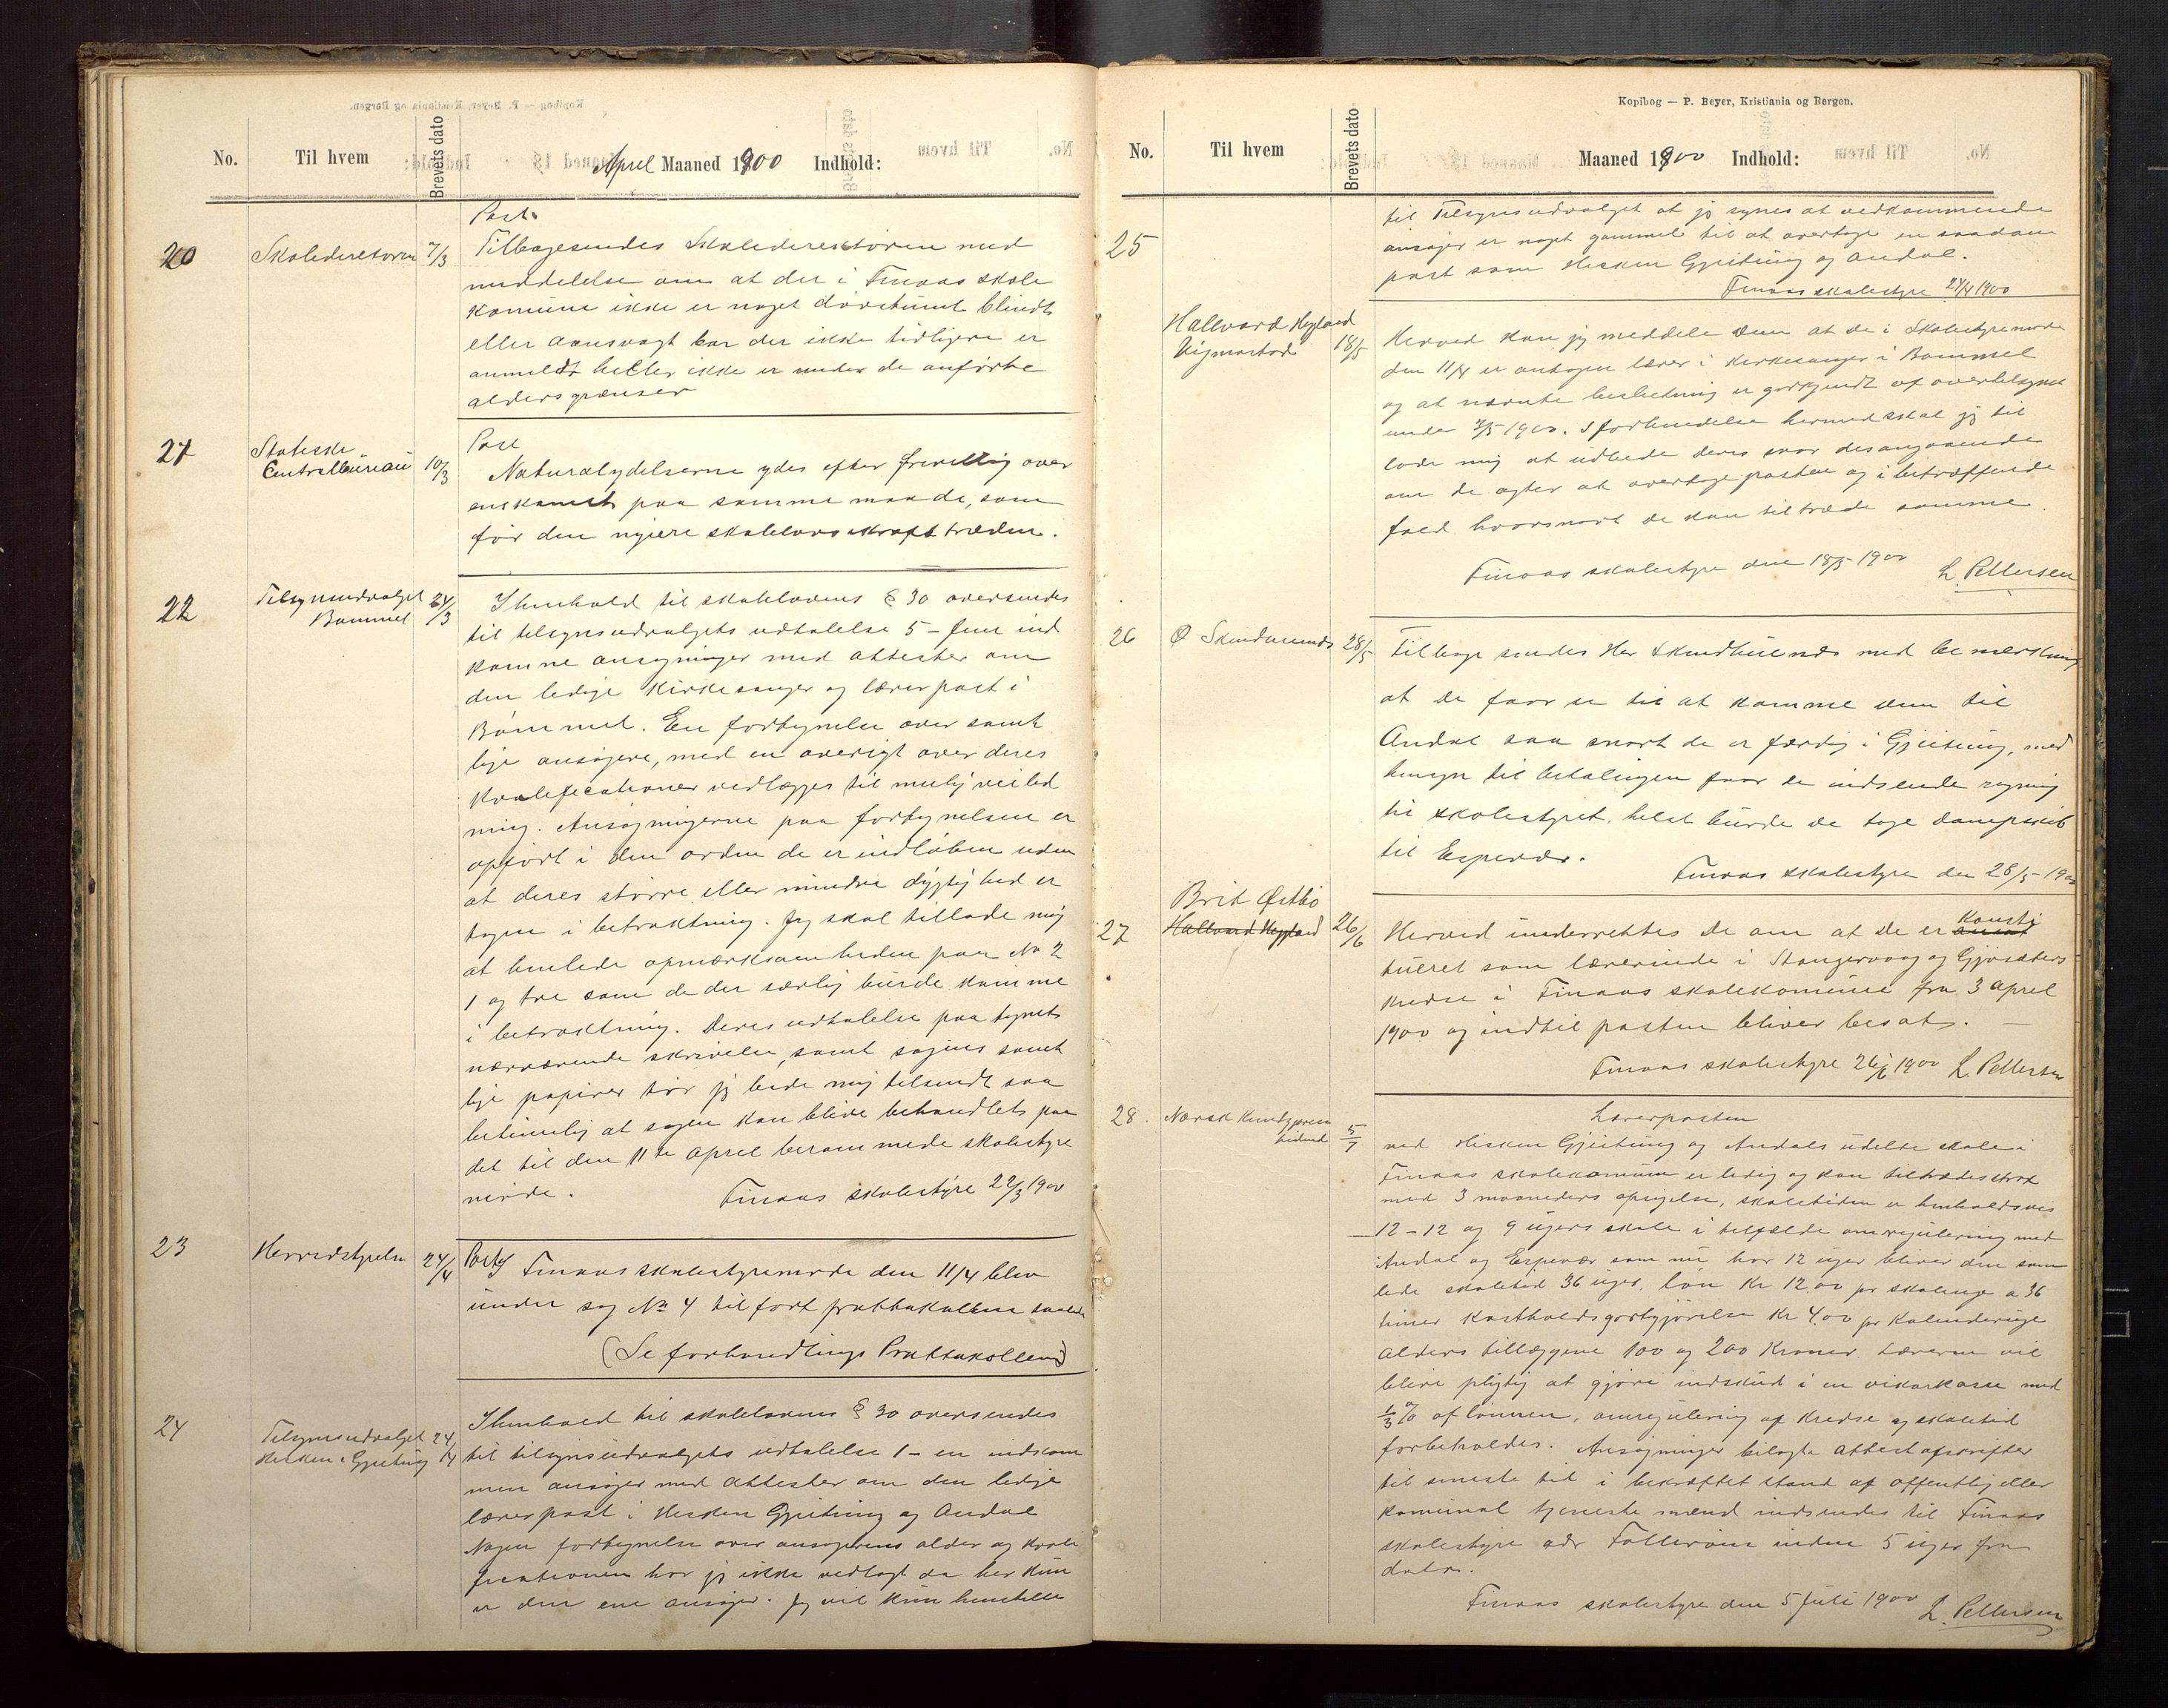 No. Til hvem Brevets dato April Maaned 1900 Indhold:
Post.
20 Skolederektøren 7/3 Tilbagesendes Skolederektøren med
meddelelse om at der i Finaas skole
komune ikke er noget døvstumt blindt
eller aansvagt barn der ikke tidligere er
anmeldt heller ikke er under de anførte
aldersgrænser
27 Statestiske Centralbureau 10/3 Post
Naturalydelserne ydes efter frevillig over
enskomst paa samme maade, som
før den nyere skolelovs ikrafttræden.
22 Tilsynsudvalget Bømmel 24/3 Ihenhold til skolelovens § 30 oversendes
til tilsynsudvalgets udtalelse 5 – fem ind
komne ansøgninger med attester om
den ledige kirkesanger og lærerpost i
Bømmel. En fortegnelse over samt
lige ansøgere, med en oversigt over deres
kvalefecationer vedlægges til mulig veiled
ning. Ansøgningerne paa fortegnelsen er
opført i den orden de er indløben uden
at deres større eller mindre dygtighed er
tagen i betraktning. Jeg skal tillade mig
at henlede opmærksomheden paa No 2
1 og tre som de der særlig burde komme
i betraktning. Deres udtalelse paa tegnet
nærværende skrivelse, samt sagens samt
lige papirer tør jeg bede mig tilsendt saa
betimelig at sagen kan blive behandlet paa
det til den 11te April berammede skolestyre
møde. Finaas skolestyre 22/3 1900
23 Herredstyrelsen 24/4 Post
I Finaas skolestyremøde den 11/4 blev
under sag No 4 tilført prottokollen saalede
(Se forhandlings Prottokollen)
24 Tilsynsudvalget Hisken Gjeitung 24/4 Ihenhold til skolelovens § 30 oversendes
til tilsynsudvalgets udtalelse 1 – en indkom
men ansøger med attester om den ledige
lærerpost i Hisken Gjeitung og Andal
Nogen fortegnelse over ansøgerens alder og kvali
fecationen har jeg ikke vedlagt da her kun
er den ene ansøger. Jeg vil kun henstille
Kopibog — P. Beyer, Kristiania og Bergen.
No. Til hvem Brevets dato Maaned 1900 Indhold:
25 til Tilsynsudvalget at jeg synes at vedkommende
ansøger er noget gammel til at overtage en saadan
post som Hisken Gjeitung og Andal.
Finaas skolestyre 24/4 1900
Hallvard Hegland Vigmostad 18/5 Herved kan jeg meddele Dem at de i Skolestyremøde
den 11/4 er antagen lærer i kirkesanger i Bømmel
og at nævnte beslutning er godkjendt af overtilsynet
under 7/5 1900. I forbindelse hermed skal jeg til
lade mig at udbede deres svar desangaaende
om de agter at overtage posten og i betræffende
fald hvorsnart de kan tiltræde samme.
Finaas skolestyre den 18/5 1900 L. Pettersen
26 Ø Skimdhuunes 28/5 Tilbage sendes Her Skimdhuunes med bemærkning
at De faar se til at komme Dem til
Andal saa snart de er færdig i Gjeitung, med
hensyn til betalingen faar de indsende regning
til skolestyret, helst burde de tage dampskib
til Espevær.
Finaas skolestyre den 28/5 – 1900
27 Brit Østbø
Hallvard Hegland 26/6 Herved underrettes De om at De er konsti
tueret som lærerinde i Stangervaag og Gjøsæters
kredse i Finaas skolekomune fra 3 april
1900 og indtil posten bliver besat. —
Finaas skolestyre 26/6 1900 L. Pettersen
28. Norsk Kundgjørelsestidende 5/7 Lærerposten
ved Hisken Gjeitung og Andals udelte skole i
Finaas skolekomune er ledig og kan tiltrædes strax
med 3 maaneders opsigelse, skoletiden er henholdsvis
12 – 12 og 9 ugers skole i tilfælde omregulering med
Andal og Espevær som nu har 12 uger bliver den sam
lede skoletid 36 uger. løn Kr 12.00 pr skoleuge a 36
timer Kostholdsgodtgjørelse Kr 4.00 pr Kalenderuge
Alders tillæggene 100 og 200 Kroner. Læreren vil
blive pligtig at gjøre indskud i en vikarkasse med
1/3 % af lønnen, omregulering af kredse og skoletid
forbeholdes. Ansøgninger bilagte Attestafskrifter
til seneste tid i bekræftet stand af offentlig eller
komunal tjeneste mænd indsendes til Finaas
skolestyre adr Folleraas inden 5 uger fra
dato.
Finaas skolestyre den 5 Juli 1900 L. Pettersen